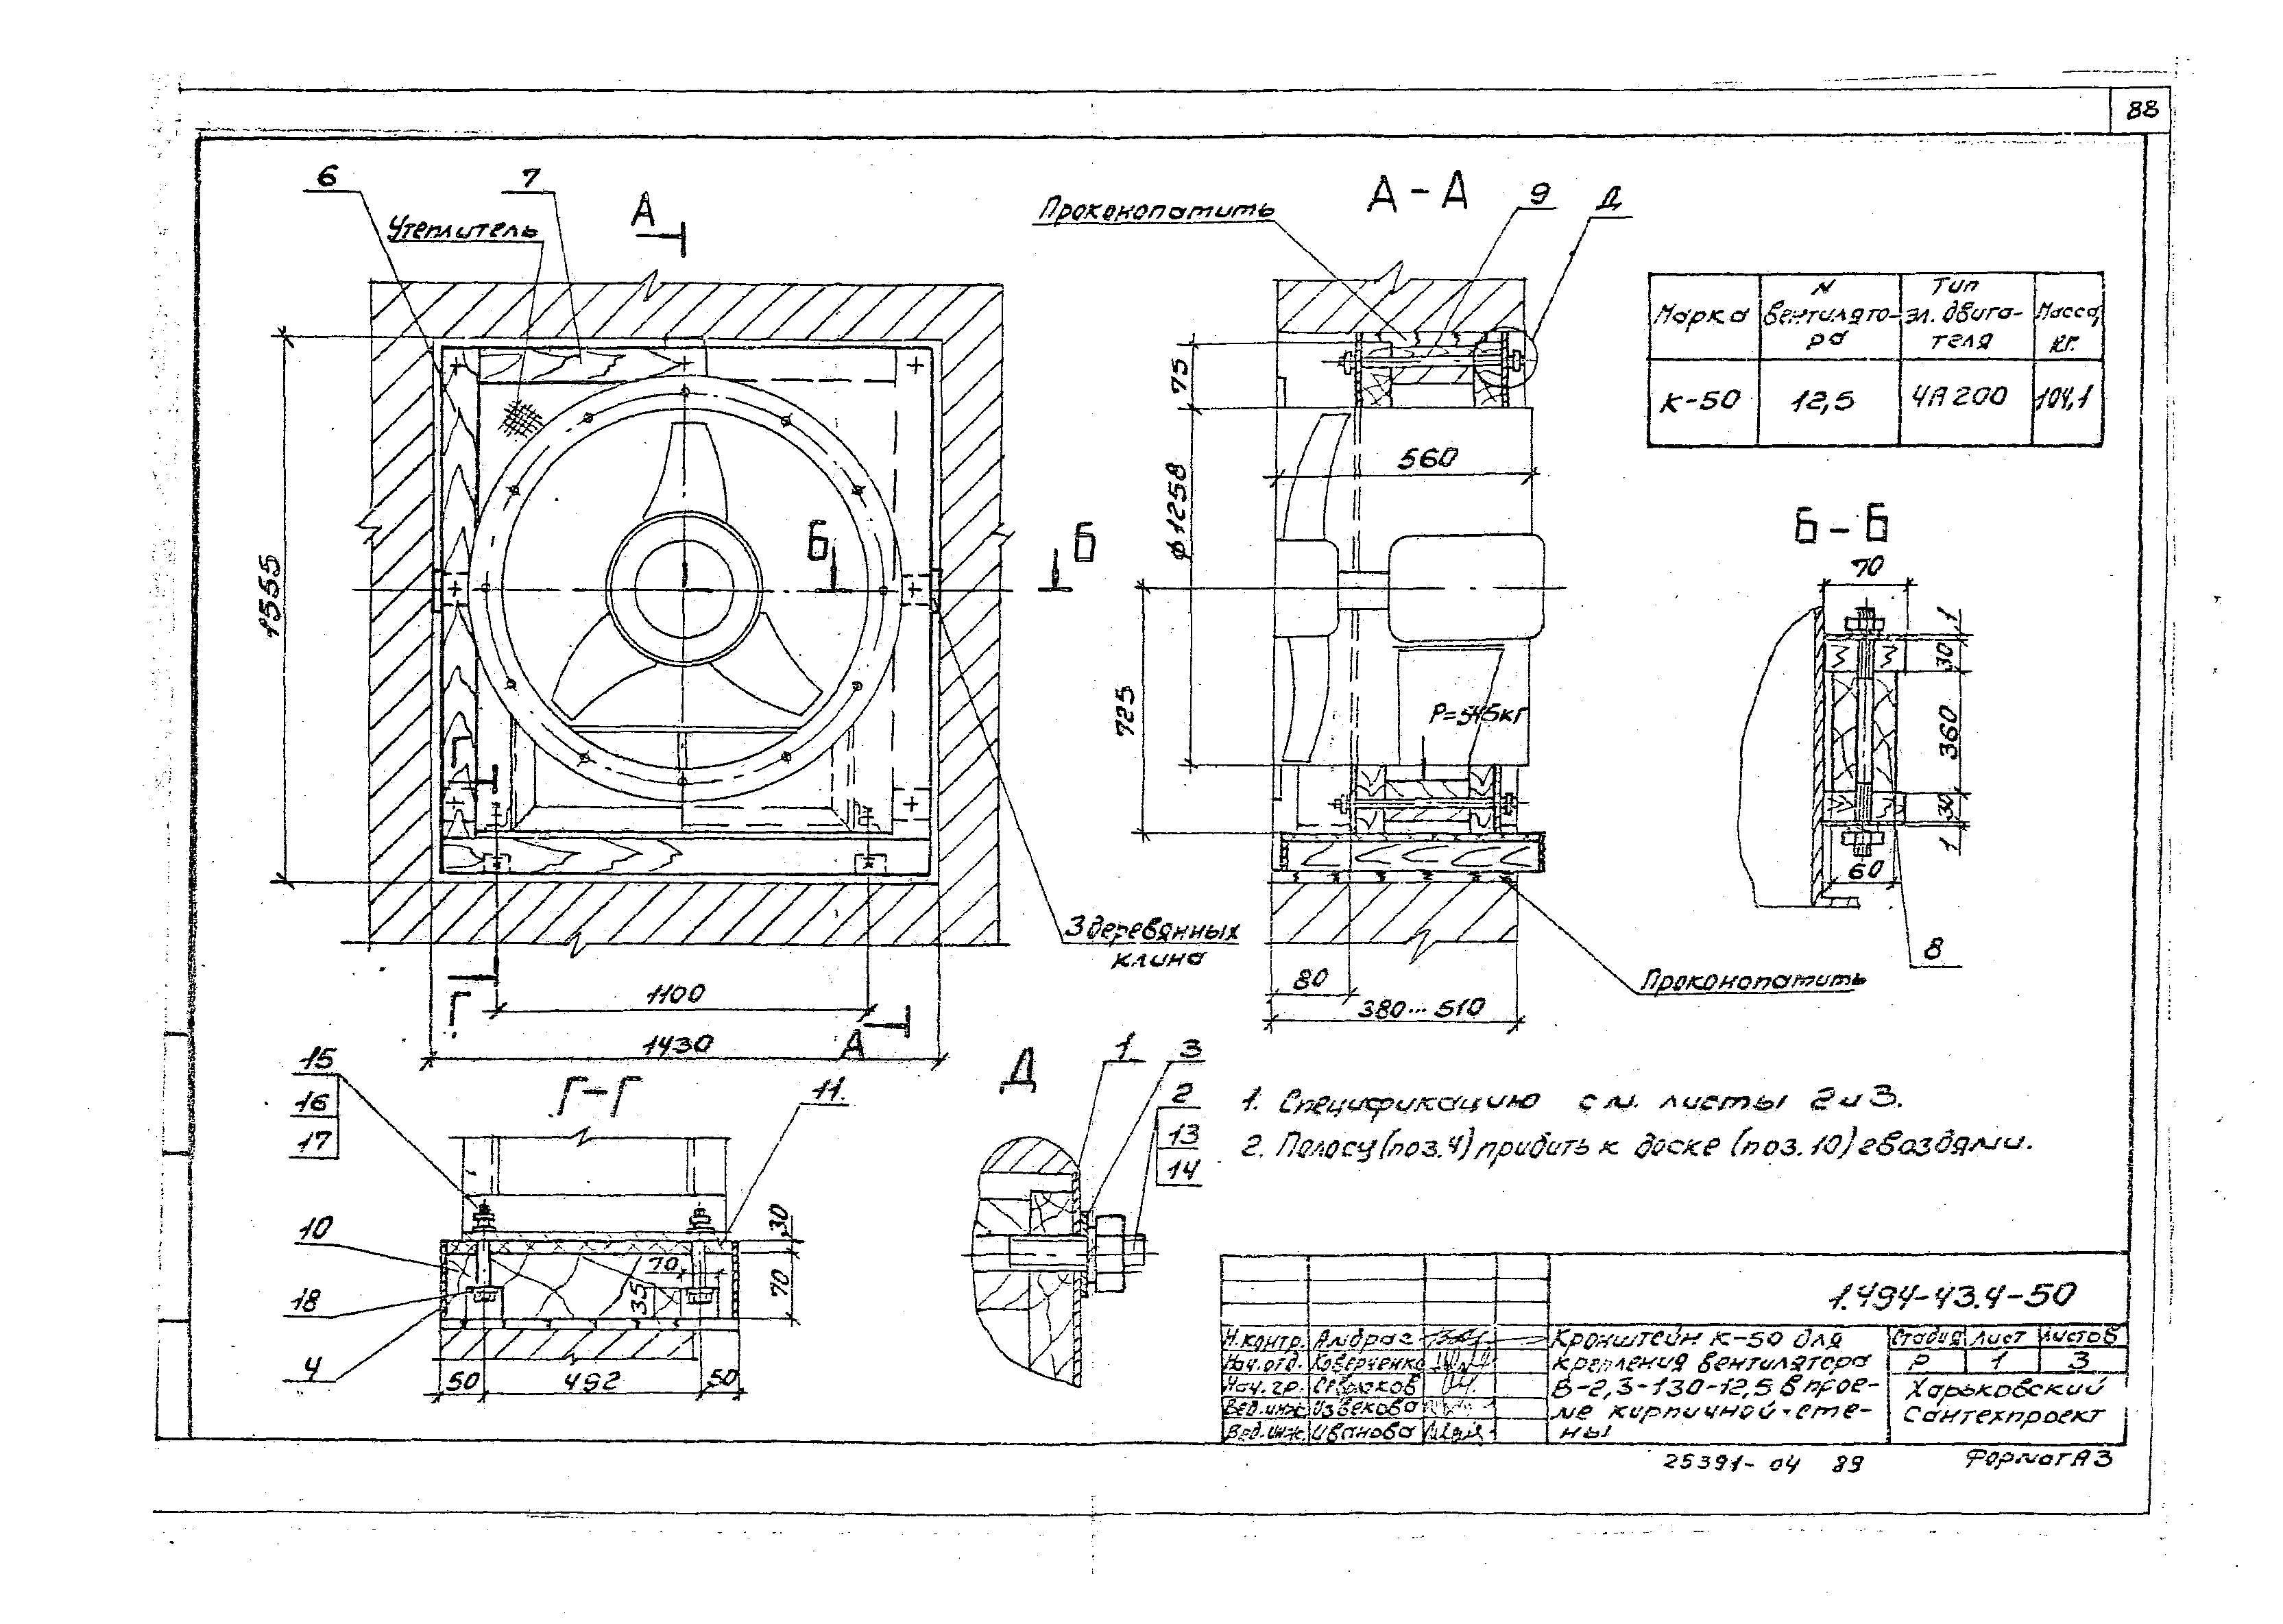 88
6
7
Утеплитель
А
1555
Б
Б
Г
Г
1100
1430
А
3 деревянных
клина
Проконопатить
А-А
9
Д
75
ф1258
560
725
Р=545кг
80
380...510
Проконопатить
Марка
N вентилято-
ра
Тип
эл. двига-
теля
Масса,
кг.
К-50
12,5
4А200
104,1
Б-Б
70
1
30
360
30
1
60
8
Г-Г
15
16
17
11.
10
18
4
30
70
70
35
50
492
50
Д
1
3
2
13
14
1. Спецификацию см. листы 2 и 3.
2. Полосу (поз.4) прибить к доске (поз.10) гвоздями.
1.494-43.4-50
Н.контр. Амбрас
Нач.отд. Коверченко
Нач.гр.
Вед.инж. Извекова
Вед.инж. Иванова
Кронштейн К-50 для
крепления вентилятора
В-2,3-130-12,5 в прое-
ме кирпичной сте-
ны
Стадия Лист Листов
Р 1 3
Харьковский
Сантехпроект
25391-04 89
Формат А3